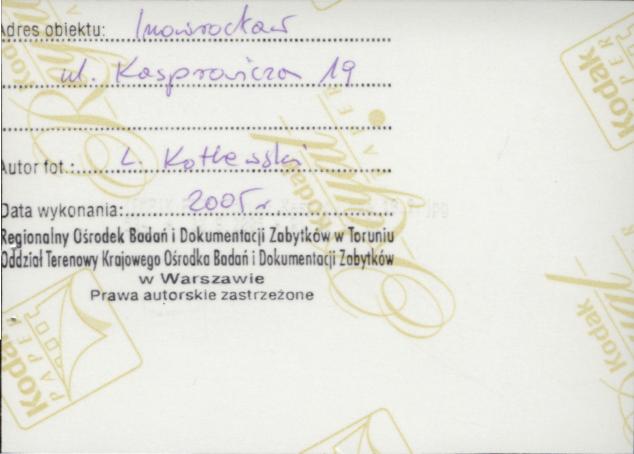 Adres obiektu: Inowrocław
ul. Kasprowicza 19
Autor fot.: L. Kotlewski
Data wykonania: 2005 r
Regionalny Ośrodek Badań i Dokumentacji Zabytków w Toruniu
Oddział Terenowy Krajowego Ośrodka Badań i Dokumentacji Zabytków
w Warszawie
Prawa autorskie zastrzeżone
Kodak
PAPER
Royal
Kodak
PAPER
Kodak
Royal
Kodak
PAPER